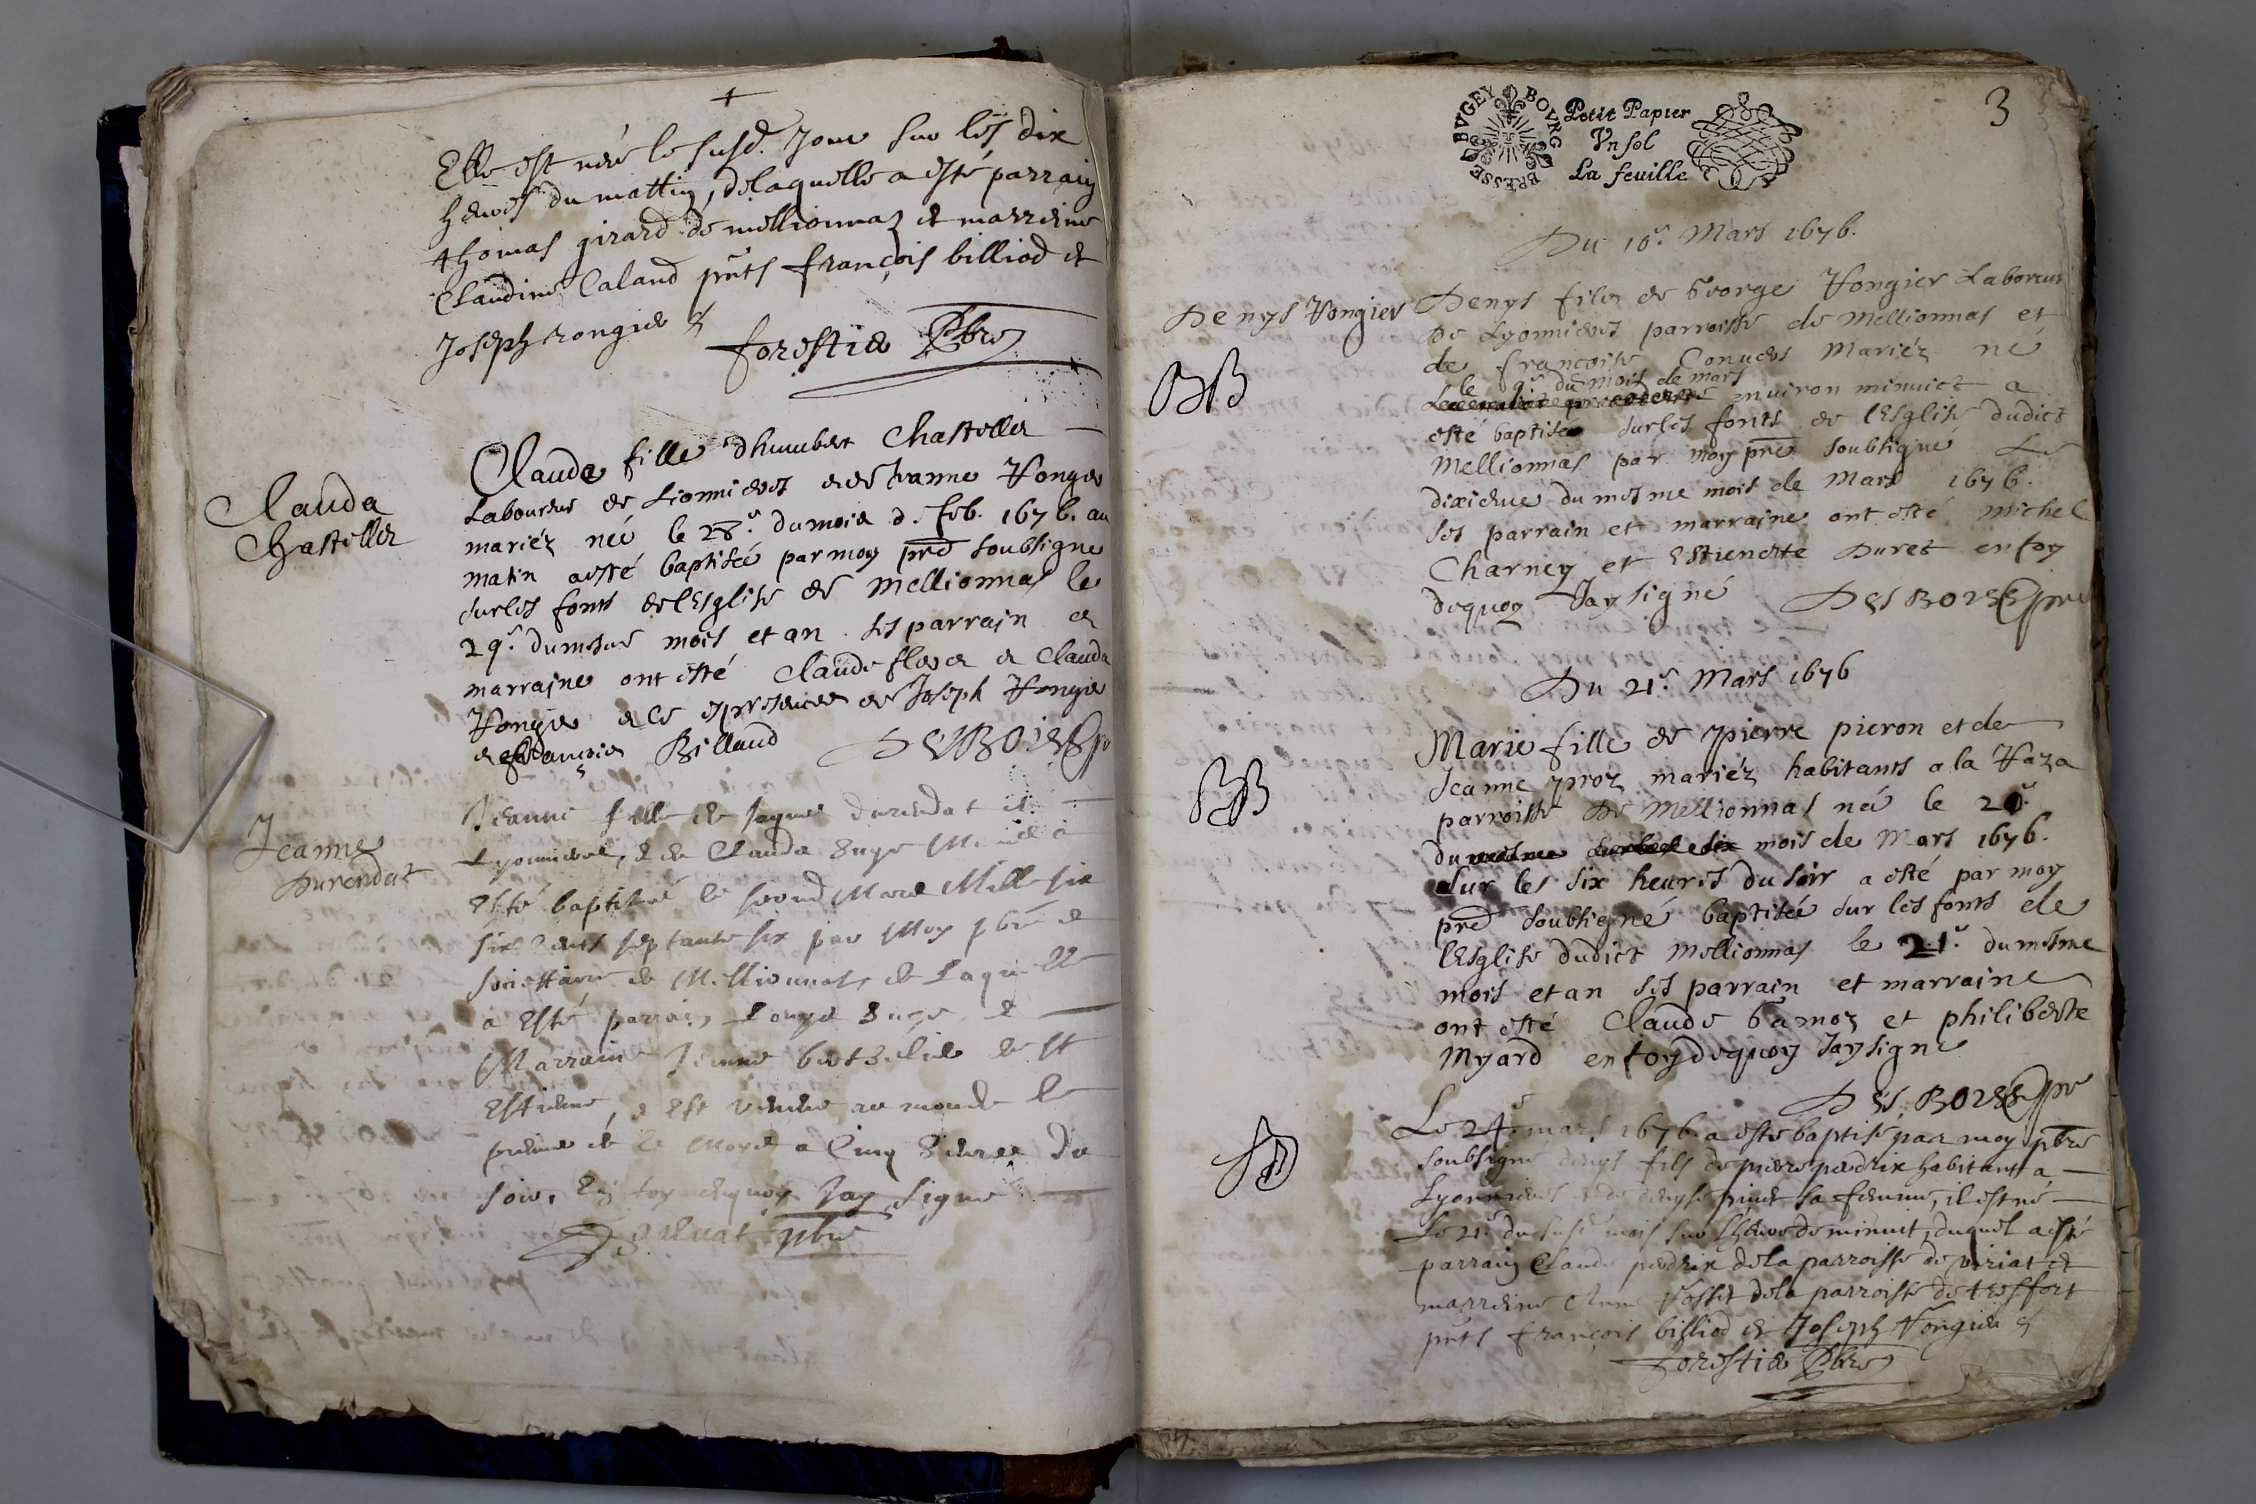 Elle est née le susd. Jour sur les dix
heures du mattin, de laquelle a esté parrain
thomas girard de mellionnaz et marreine
Claudine Caland pnts françois billiod et
Joseph rongier
forestier Pbre
Clauda
Chasteller
Clauda fille dhumbert Chasteller
Laboureur de Lionnieres et de Jeanne Vongier
mariéz née le 28.e du mois d. feb. 1676. au
matin a esté baptisée par moy pre soubsigne
sur les fonts de l'Esglise de Mellionnas le
29.e du mesme mois et an ses parrain et
marrajne ont esté Claude et Clauda
Vongier en presence de Joseph Vongier
et françois Billaud DESBOIS pre
Jeanne
Durendat
Jeanne fille de Jaque durendat de
Lyonnieres, & de Clauda
Esté baptisée le second Mars Mille six
six Cents septante six par Moy pbre &
de Mellionnas, de Laquelle
a Esté parrain &
Marraine Jeanne de St
Estienne, & est venue au monde le
premier de Mars a Cinq heures du
soir, En foy dequoy Jay signe
pbre
BRESSE BVGEY BOVRG
Petit Papier
Vn sol
La feuille
3
Du 10.e Mars 1676.
Denys Vongier
Denys filz de George Vongier Laboreur
De Lyonnieres parroisse de Mellionnas et
de françoise Mariéz né
le 9.e du mois de mars
environ minuict a
esté baptisé sur les fonts de l'Esglise dudict
Mellionnas par moy pre soubsigné Le
dixieme du mesme mois de Mars 1676.
Ses parrain et marraine ont esté Michel
Charney et Estienette Duret en foy
dequoy Jay signé DESBOIS pre
Du 21.e Mars 1676
Marie fille de pierre pieron et de
Jeanne mariéz habitants a la Vaza
parroisse De Mellionnas née le 20.e
du mois de Mars 1676.
Sur les six heures du soir a esté par moy
pre soubsigné baptisée sur les fonts de
l'Esglise dudict Mellionnas le 21.e du mesme
mois et an ses parrain et marraine
ont esté Claude et philiberte
Myard en foy dequoy Jay signe
DES BOIS pre
Le 24.e mars 1676 a esté baptisé par moy pbre
soubsigné denys fils de pierre perdrix habitant a
Lyonnieres & de denyse sa femme, il est né
Le 21.e du susd mois sur lheure de minuit, duquel a esté
parrain Claude perdrix de la parroisse de viriat et
marreine de la parroisse de treffort
pnts françois billiod et Joseph Vongier
forestier Pbre